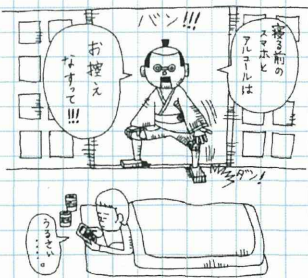 バン!!!
寝る前の
スマホと
アルコールは
お控え
なすって!!!
ダン!
うるさい
・・・・。